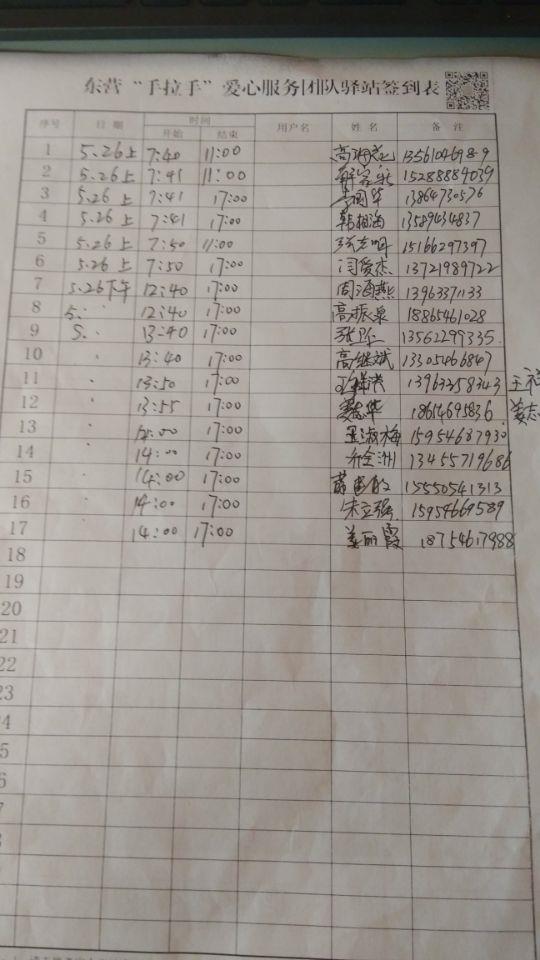 东营“手拉手”爱心服务团队驿站签到表
序号 日期 时间 用户名 姓名 备注
开始 结束
1 5.26上 7:40 11:00
2 5.26上 7:41 11:00 15288884039
3 5.26上 7:41 17:00 13864730576
4 5.26上 7:41 17:00 韩相海 13589434837
5 5.26上 7:50 11:00 15166297397
6 5.26上 7:50 17:00 闫爱杰 13721989722
7 5.26下午 12:40 17:00 周海燕 13963371133
8 5. 12:40 17:00 高振泉 18865461028
9 5. 13:40 17:00 13562299335
10 13:40 17:00 高继斌 13305466847
11 13:50 17:00 13963258343
12 13:55 17:00 姜志华 18614695836 姜志
13 17:00 王淑梅 15954687930
14 14:00 17:00 13455719686
15 14:00 17:00 15550541313
16 14:00 17:00 朱立强 15954669589
17 14:00 17:00 姜丽霞 18754617988
18
19
20
21
22
23